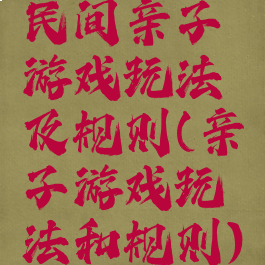 民间亲子
游戏玩法
及规则(亲
子游戏玩
法和规则)